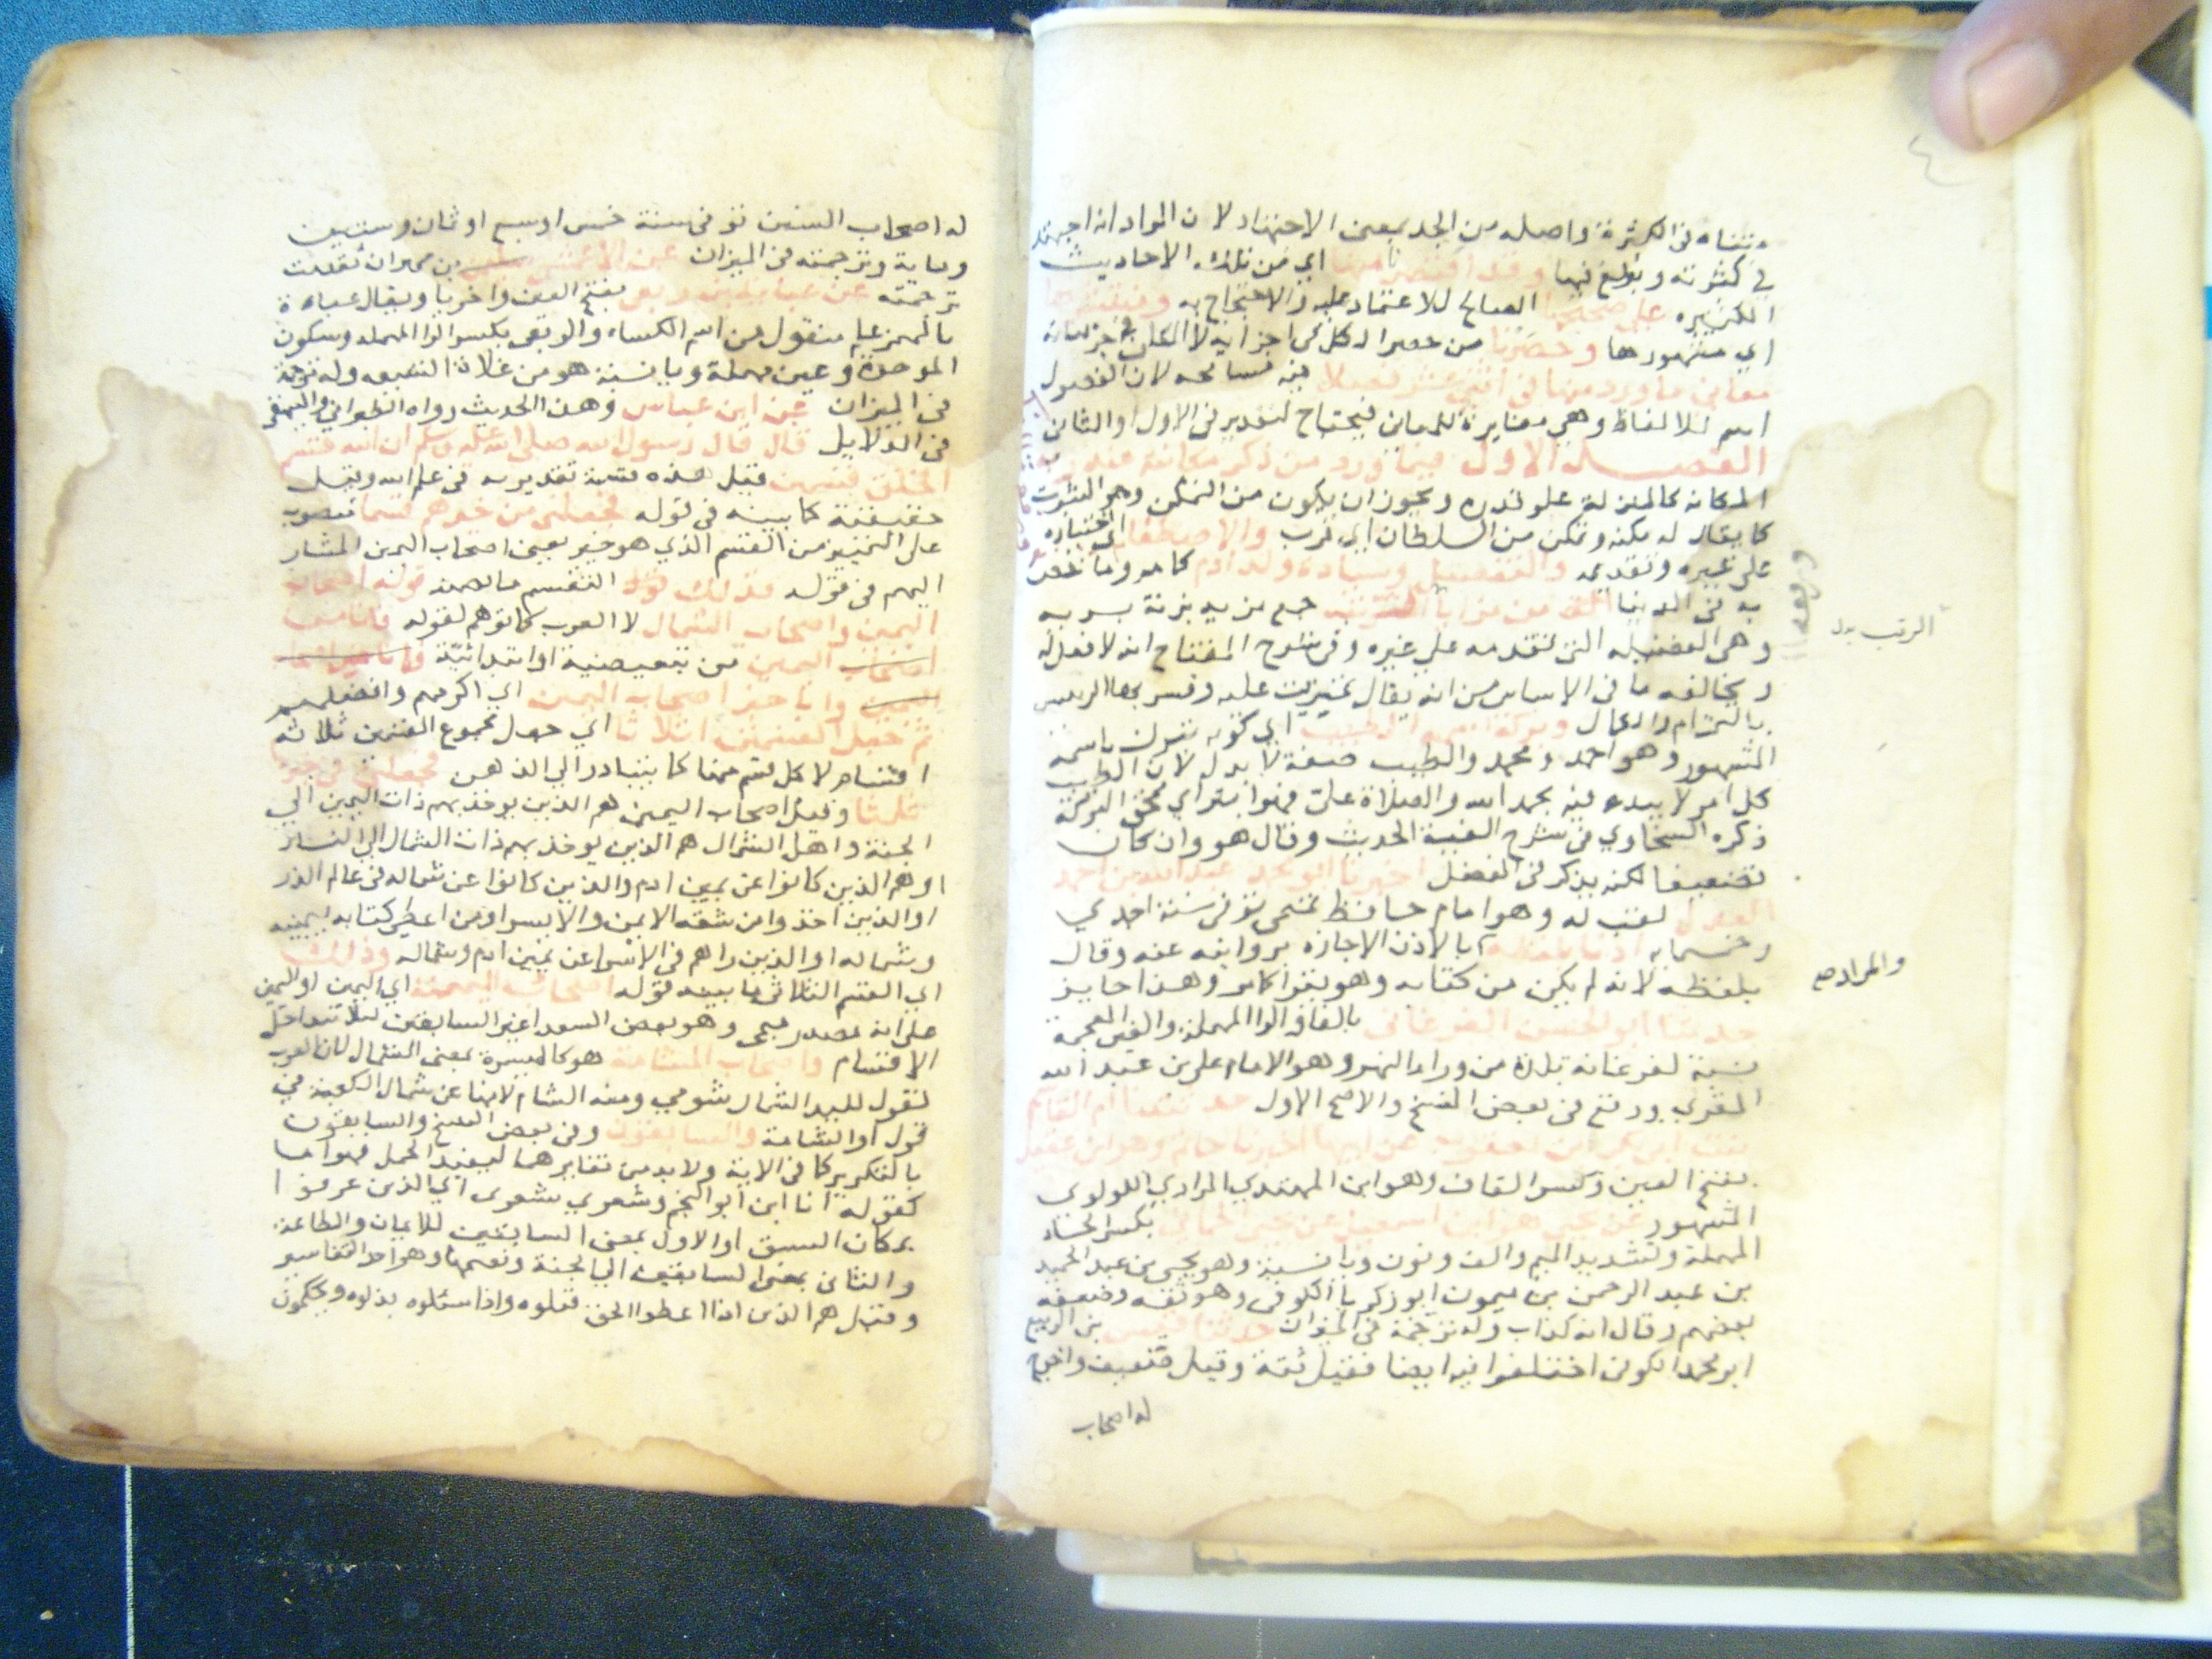 متناه فى الكثرة واصله من الجد بمعنى الاجتهاد لان المراد انه اجهد
في كثرته وبولغ فيها وقد اقتصرنا منها اي من تلك الاحاديث
الكثيره على صحيحها الصالح للاعتماد عليه والاحتجاج به ومنتشرها
اي مشهورها وحصرنا من حصر الكل فى اجزايه لا الكلي فى جزئياته
معانى ما ورد منها فى اثنى عشر فصلا فيه مسامحه لان الفصول
اسم للالفاظ وهى مغايرة للمعانى فيحتاح لتقدير فى الاول او الثانى
الفصل الاول فيما ورد من ذكر مكانته عند ربه
المكانه كالمنزلة علو قدره ويجوز ان يكون من التمكن وهو الثبوت
كما يقال له مكنه وتمكن من السلطان اي قرب والاصطفا اي اختياره
على غيره وتقديمه والتفضيل وسيادة ولد ادم كما مر وما خصه
به فى الدنيا من مزايا الرتب جمع مزيه بزنة سريه
وهى الفضيله التى تقدمه على غيره وفى شرح المفتاح انه لا فعل له
ويخالفه ما فى الاساس من انه يقال تمزيت عليه وفسر بها الرتب
بالتزام والكمال وبركة اسمه الطيب اي كونه تبرك باسمه
المشهور وهو احمد ومحمد والطيب صفة لا بدل لان الطيب
كل امر لا يبدء فيه بحمد الله والصلاة علىّ فهوا بتر اي ممحق البركة
ذكره السخاوي فى شرح الفية الحديث وقال هو وان كان
ضعيفا لكنه يذكر فى الفضل اخبرنا ابو محمد عبد الله بن احمد
العدل لقب له وهو امام حافظ تميمى توفى سنة احدي
وخمسمايه اذنا بلفظه بالاذن الاجازه بروايته عنه وقال
بلفظه لانه لم يكن من كتابه وهو يقرا كما مر وهذا جايز
حدثنا ابو الحسن الفرغانى بالفا والرا المهملة والغين المعجمة
نسبة لفرغانه بلدة من وراء النهر وهو الامام على بن عبد الله
المقري ووقع فى بعض النسخ والاصح الاول حدثتنا ام القاسم
بنت ابى بكر ابن يعقوب عن ابيها اخبرنا حاتم وهو ابن عقيل
بفتح العين وكسر القاف وهو ابن المهتدي المرادي اللولوي
المشهور عن يحيى هو ابن اسمعيل عن يحيى الحمانى بكسر الحاء
المهملة وتشديد الميم والف ونون ويا نسبة وهو يحيى بن عبد الحميد
بن عبد الرحمن بن ميمون ابو زكريا الكوفى وهو ثقه وضعفه
بعضهم وقال انه كذاب وله ترجمة فى الميزان حدثنا قيس بن الربيع
ابو محمد الكوفى اختلفوا فيه ايضا فقيل ثقة وقيل ضعيف واخرج
له اصحاب
الرتب بدل
والمراد
له اصحاب السنن توفى سنة خمس اوسبع او ثمان وستين
وماية وترجمته فى الميزان عن الاعمش سليمن بن مهران تقدمت
ترجمته عن عباية بن ربعى بفتح العين واخريا ويقال عباءة
بالهمز علم منقول من اسم الكساء والربعى بكسر الرا المهمله وسكون
الموحدة وعين مهملة ويا نسبة هو من غلاة الشيعه وله ترجمة
فى الميزان عن ابن عباس وهذا الحديث رواه الطبرانى والبيهقى
فى الدلايل قال قال رسول الله صلى الله عليه وسلم ان الله قسم
الخلق قسمين فقيل هذه قسمة تقديريه فى علم الله وقيل
حقيقية كما بينه فى قوله فجعلنى من خيرهم قسما منصوب
على التمييز من القسم الذي هو خير بمعنى اصحاب اليمين المشار
اليهم فى قوله فذلك التقسيم ما تضمنه قوله اصحاب
اليمين واصحاب الشمال لا العرب كما توهم لقوله فانا من
اصحاب اليمين من تبعيضية او ابتدائية وانا خير اصحاب
اليمين وانا خير اصحاب اليمين اي اكرمهم وافضلهم
ثم جعل القسمين اثلاثا اي جعل مجموع القسمين ثلاثه
اقسام لا كل قسم منهما كما يتبادر الي الذهن فجعلنى فى خيرها
ثلثا وقيل اصحاب اليمين هم الذين يوخذ بهم ذات اليمين الي
الجنة واهل الشمال هم الذين يوخذ بهم ذات الشمال الي النار
او هم الذين كانوا عن يمين ادم والذين كانوا عن شماله فى عالم الذر
او الذين اخذوا من شقه الايمن والايسر او من اعطى كتابه بيمينه
وشماله او الذين راهم فى الاسرا عن يمين ادم وشماله وذلك
اي القسم الثلاثى ما بينه قوله اصحاب الميمنة اي اليمين او اليمن
على انه مصدر ميمى وهو بعض السعدا غير السابقين ليلا تتداخل
الاقسام واصحاب المشامة هو كالميسرة بمعنى الشمال لان العرب
تقول لليد الشمال شومي ومنه الشام لانها عن شمال الكعبة فى
قول او الشامة والسابقون وفى بعض النسخ والسابقون
بالتكرير كما فى الاية ولا بد من تغايرهما ليفيد الحمل فهو اما
كقوله انا ابن ابو النجم وشعري شعري اي الذين عرفوا
بمكان السبق او الاول بمعنى السابقين للايمان والطاعة
والثانى بمعنى السابقين الي الجنة ونعيمها وهو احد التفاسير
وقيل هم الذين اذا اعطوا الحق قبلوه واذا سئلوه بذلوه ويحكمون